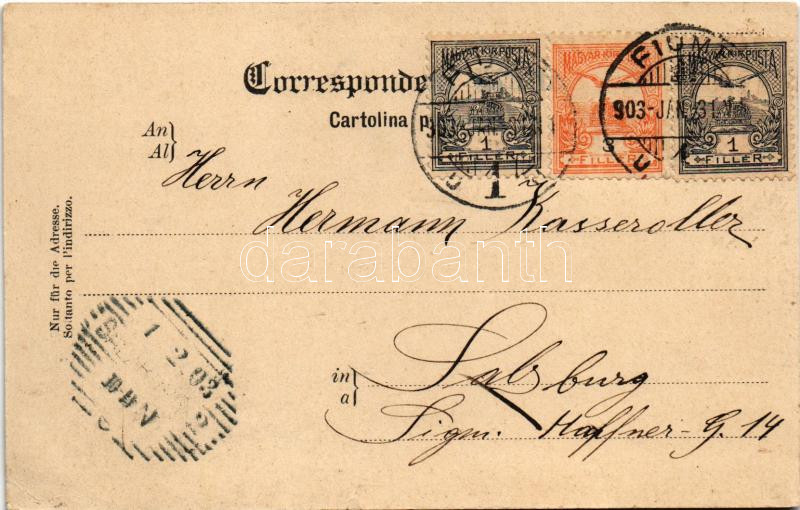 MAGYAR·KIR·POSTA
MAGYAR·KIR·POSTA
MAGYAR·KIR·POSTA
FIUME
903-JAN.31
Corresponde
Cartolina p
1
3
1
FILLER
FILLER
FILLER
1
An
Al
Herrn
Hermann Kasseroller
darabanth
Nur für die Adresse.
Soltanto per l'indirizzo.
1 2 03
in
a
Salzburg
Sigm. Haffner-G. 14